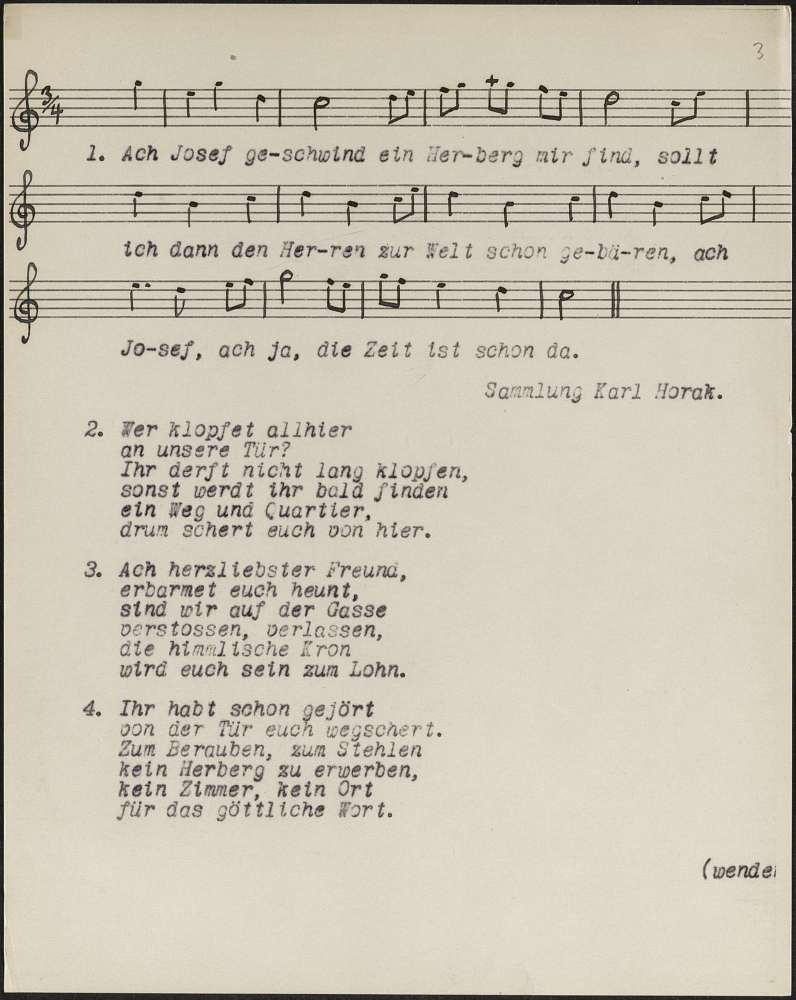 3
3/4
1. Ach Josef ge-schwind ein Her-berg mir find, sollt
ich dann den Her-ren zur Welt schon ge-bä-ren, ach
Jo-sef, ach ja, die Zeit ist schon da.
Sammlung Karl Horak.
2. Wer klopfet allhier
an unsere Tür?
Ihr derft nicht lang klopfen,
sonst werdt ihr bald finden
ein Weg und Quartier,
drum schert euch von hier.
3. Ach herzliebster Freund,
erbarmet euch heunt,
sind wir auf der Gasse
verstossen, verlassen,
die himmlische Kron
wird euch sein zum Lohn.
4. Ihr habt schon gejört
von der Tür euch wegschert.
Zum Berauben, zum Stehlen
kein Herberg zu erwerben,
kein Zimmer, kein Ort
für das göttliche Wort.
(wende